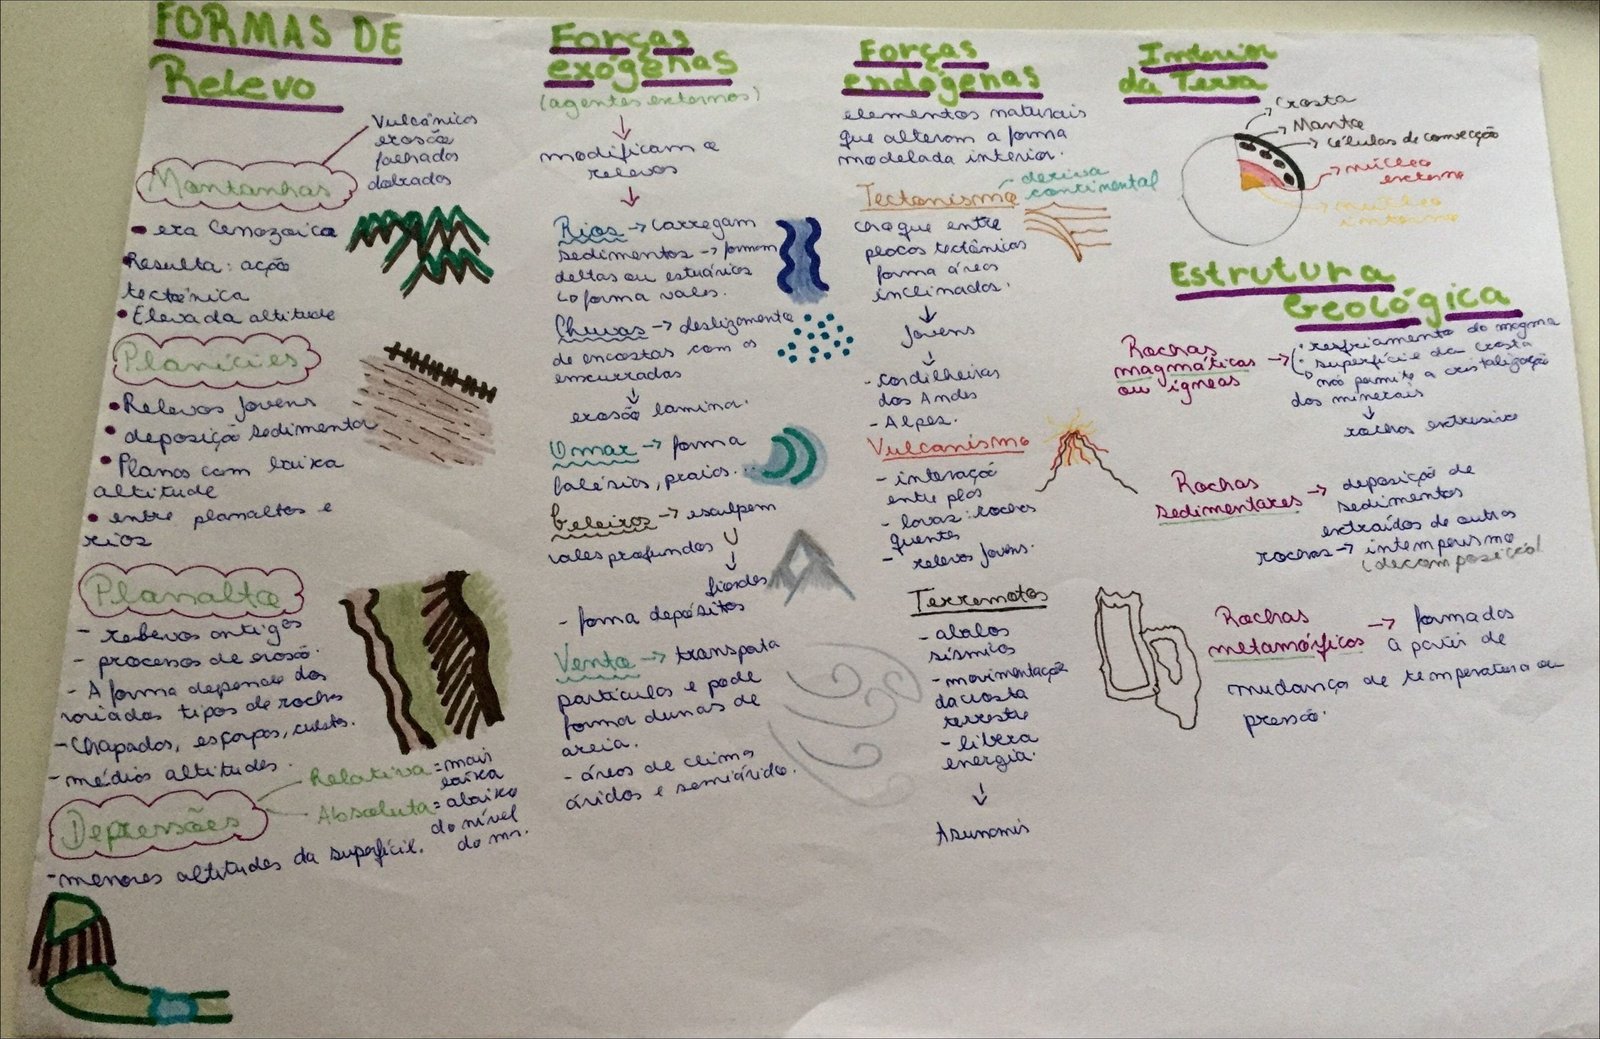 FORMAS DE
Relevo
Vulcânicos
erosão
falhados
dobrados
Montanhas
• era Cenozoica
• Resulta: ação
tectônica
• Elevada altitude
Planícies
• Relevos jovens
• deposição sedimentar
• Planos com baixa
altitude
• entre planaltos e
rios
Planalto
- relevos antigos
- processos de erosão.
- A forma depende dos
variados tipos de rochas
- Chapadas, escarpas, cuestas.
- médias altitudes.
Depressões
Relativa = mais
baixa
Absoluta = abaixo
do nível
do mar.
- menores altitudes da superfície.
Forças
exógenas
(agentes externos)
modificam o
relevos
Rios → carregam
sedimentos → formam
deltas ou estuários
↳ forma vales.
Chuvas → deslizamento
de encostas com as
enxurradas
erosão laminar.
O mar → forma
falésias, praias...
Geleiras → esculpem
vales profundos
fiordes
- forma depósitos
Vento → transporta
partículas e pode
formar dunas de
areia.
- áreas de clima
áridos e semiárido.
Forças
endógenas
elementos naturais
que alteram a forma
modelada interior.
Tectonismo - deriva
continental
choque entre
placas tectônicas
forma áreas
inclinadas.
Jovens
- Cordilheiras
dos Andes
- Alpes.
Vulcanismo
- interação
entre plas
- lavas: rochas
quentes
- relevos jovens.
Terremotos
- abalos
sísmicos
- movimentação
da crosta
terrestre
- libera
energia.
Tsunamis
Interior
da Terra
Crosta
Manto
Células de convecção
núcleo
externo
núcleo
interno
Estrutura
Geológica
Rochas
magmáticas
ou ígneas
• resfriamento do magma
• superfície da crosta
não permite a cristalização
dos minerais
rochas extrusiva
Rochas
sedimentares → deposição de
sedimentos
extraídos de outras
rochas → intemperismo
(decomposição)
Rochas
metamórficas → formados
a partir de
mudança de temperatura ou
pressão.